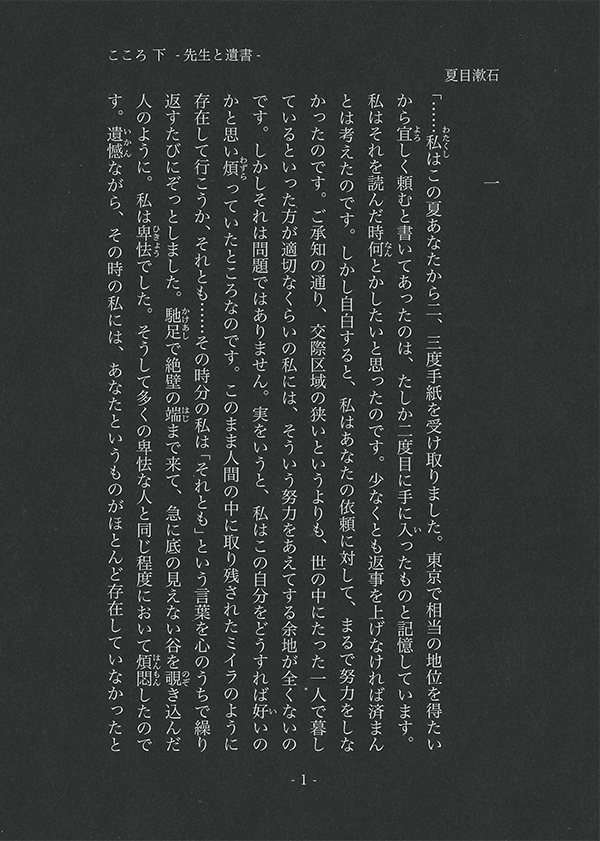 こころ 下 - 先生と遺書 -
夏目漱石
一
「……私はこの夏あなたから二、三度手紙を受け取りました。東京で相当の地位を得たい
から宜しく頼むと書いてあったのは、たしか二度目に手に入ったものと記憶しています。
私はそれを読んだ時何とかしたいと思ったのです。少なくとも返事を上げなければ済まん
とは考えたのです。しかし自白すると、私はあなたの依頼に対して、まるで努力をしな
かったのです。ご承知の通り、交際区域の狭いというよりも、世の中にたった一人で暮し
ているといった方が適切なくらいの私には、そういう努力をあえてする余地が全くないの
です。しかしそれは問題ではありません。実をいうと、私はこの自分をどうすれば好いの
かと思い煩っていたところなのです。このまま人間の中に取り残されたミイラのように
存在して行こうか、それとも……その時分の私は「それとも」という言葉を心のうちで繰り
返すたびにぞっとしました。馳足で絶壁の端まで来て、急に底の見えない谷を覗き込んだ
人のように。私は卑怯でした。そうして多くの卑怯な人と同じ程度において煩悶したので
す。遺憾ながら、その時の私には、あなたというものがほとんど存在していなかったと
- 1 -